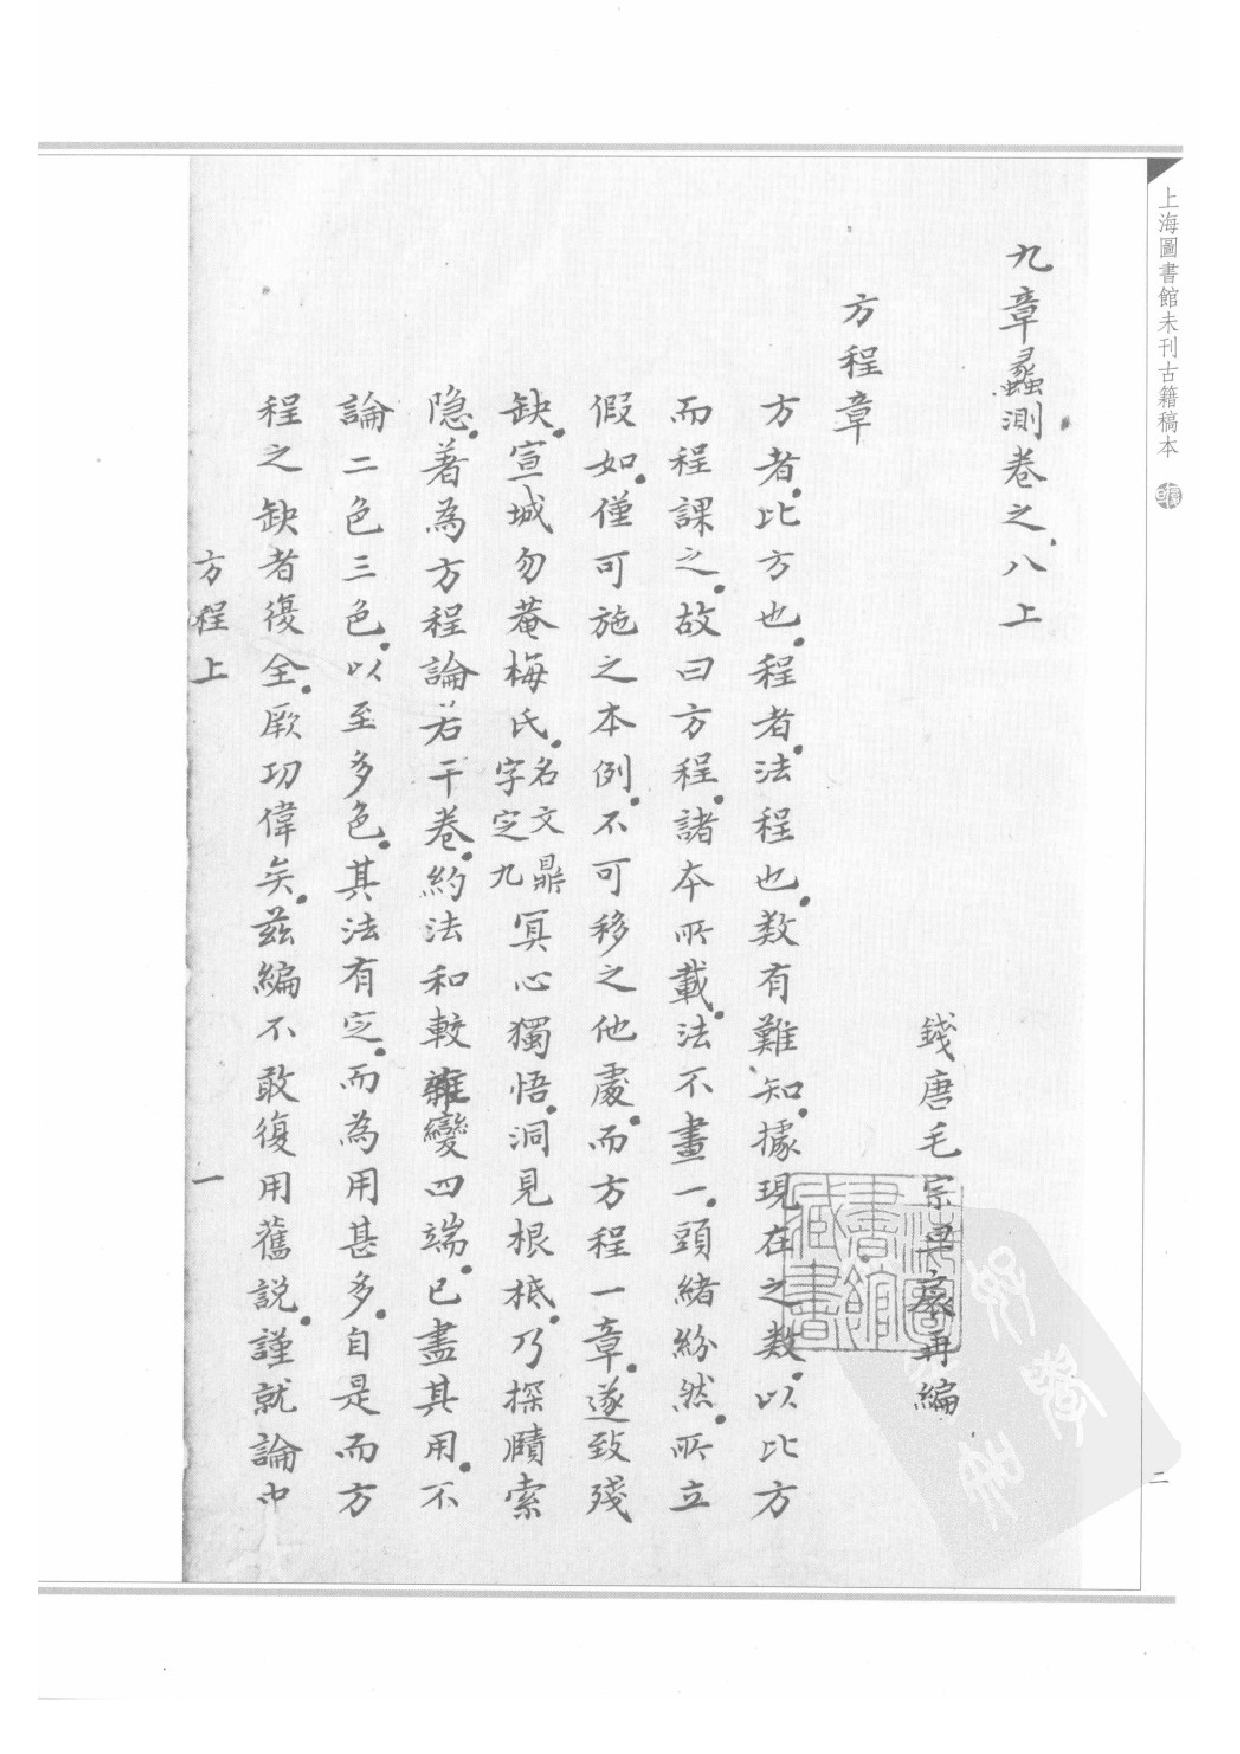 上海圖書館未刊古籍稿本
九章蠡測卷之八上
錢唐毛宗旦扆再編
方程章
方者比方也程者法程也数有難知據現在之数以比方
而程課之故曰方程諸本所載法不畫一頭緒紛然所立
假如僅可施之本例不可移之他處而方程一章遂致殘
缺宣城勿菴梅氏名文鼎字定九冥心獨悟洞見根柢乃探賾索
隐著為方程論若干卷約法和較雜變四端已盡其用不
論二色三色以至多色其法有定而為用甚多自是而方
程之缺者復全厥功偉矣茲編不敢復用舊説謹就論中
方程上 一
二